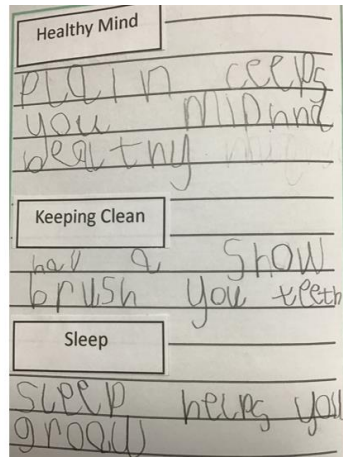 Healthy Mind
plain ceeps
you midnnd
healthy
Keeping Clean
hav a Show
brush you teeth
Sleep
Sleep helps you
groow